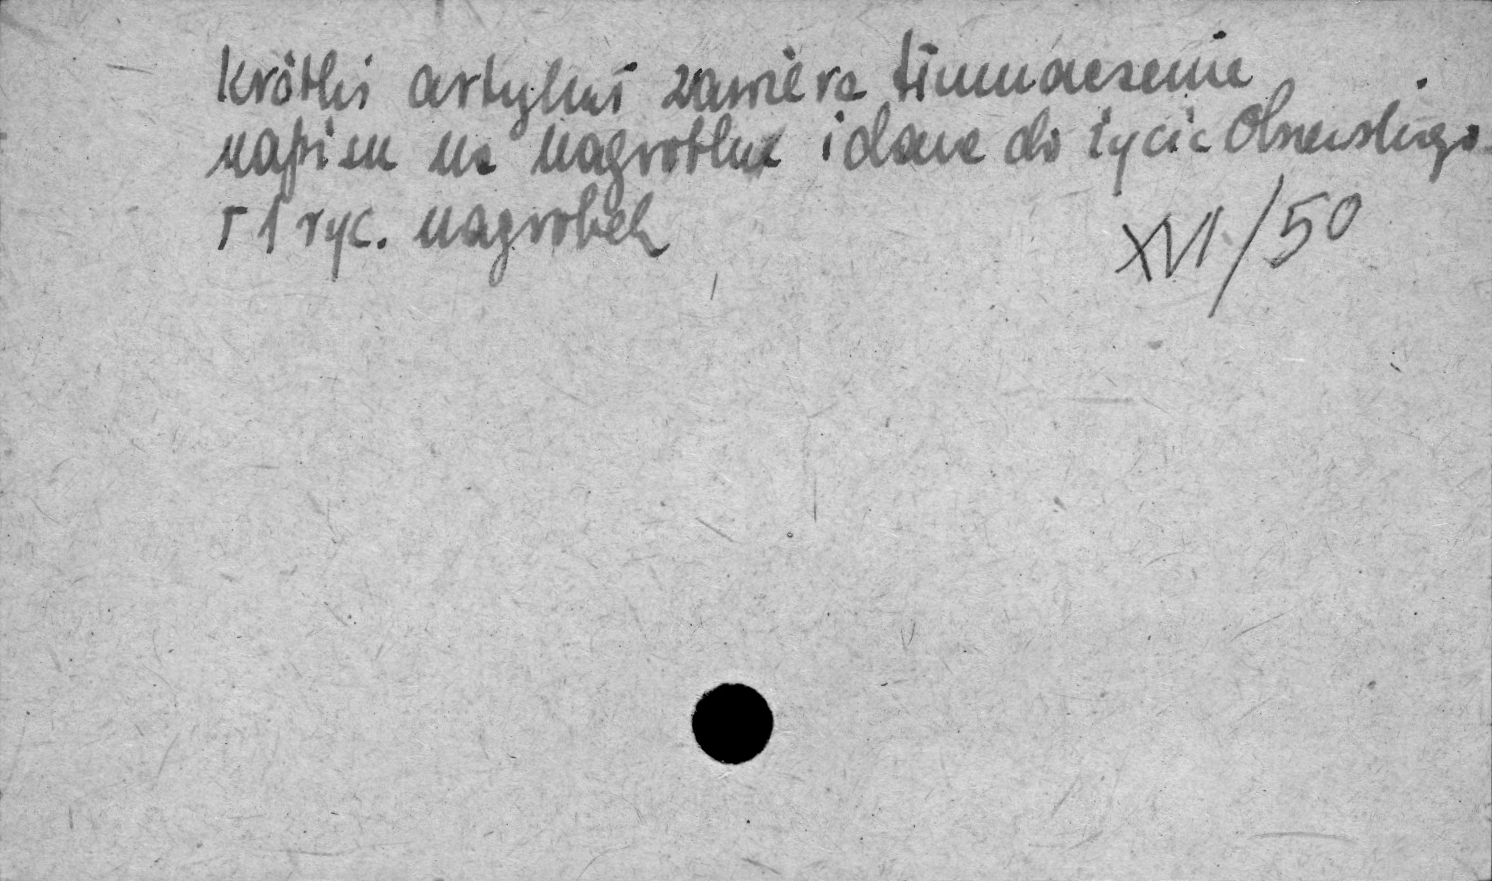 Krótki artykuł zawiera tłumaczenie
napisu na nagrobku i dane do życia Olszewskiego
r 1 ryc. nagrobek
XVI/50